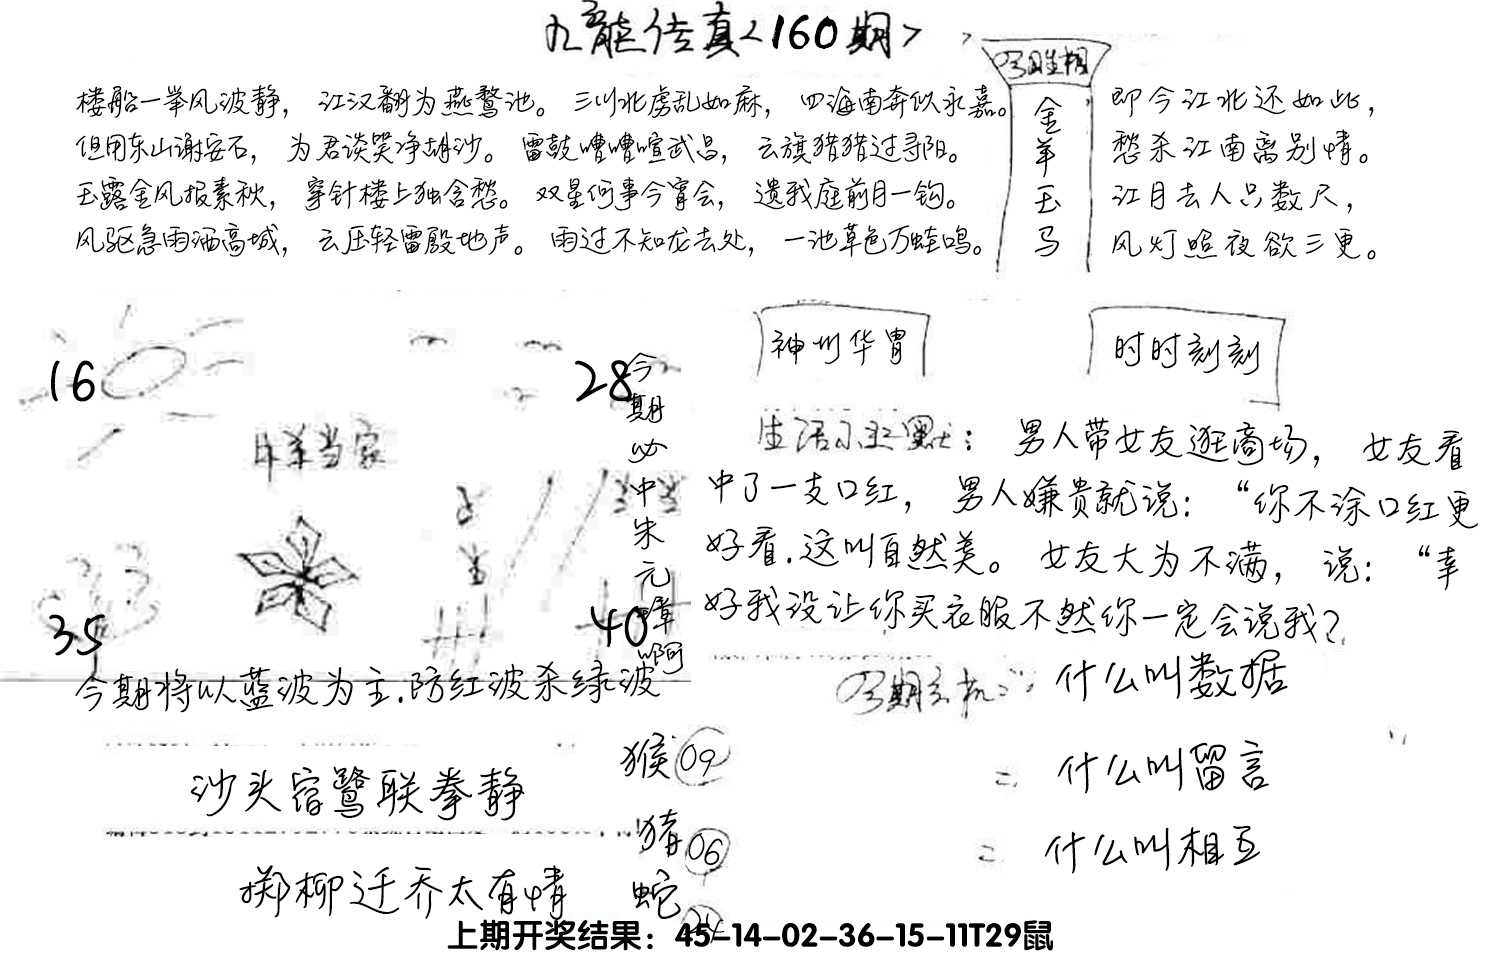 九龙传真<160期>
今期生相
金羊玉马
楼船一举风波静，江汉翻为燕鹜池。三川北虏乱如麻，四海南奔似永嘉。
但用东山谢安石，为君谈笑净胡沙。雷鼓嘈嘈喧武昌，云旗猎猎过寻阳。
玉露金风报素秋，穿针楼上独含愁。双星何事今宵会，遗我庭前月一钩。
风驱急雨洒高城，云压轻雷殷地声。雨过不知龙去处，一池草色万蛙鸣。
即今江北还如此，
愁杀江南离别情。
江月去人只数尺，
风灯照夜欲三更。
16
28
今期必中朱元璋啊
牛羊当家
35
40
今期将以蓝波为主.防红波杀绿波
神州华胄
时时刻刻
生活小幽默：男人带女友逛商场，女友看
中了一支口红，男人嫌贵就说：“你不涂口红更
好看.这叫自然美。女友大为不满，说：“幸
好我没让你买衣服不然你一定会说我？
今期玄机：什么叫数据
=什么叫留言
=什么叫相互
沙头宿鹭联拳静
掷柳迁乔太有情
猴09
猪06
蛇
上期开奖结果：45-14-02-36-15-11T29鼠